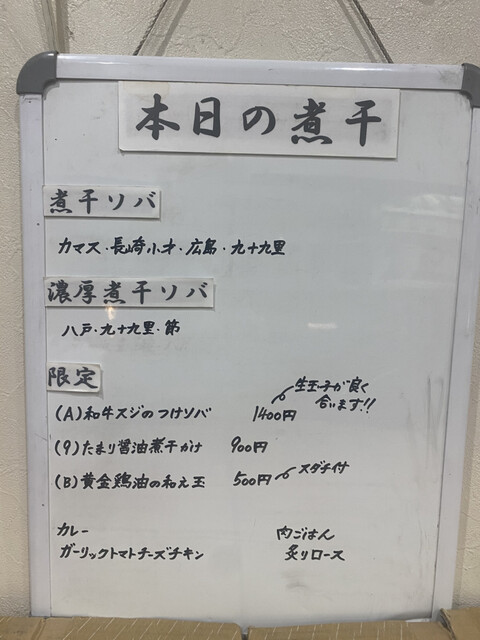 本日の煮干
煮干ソバ
カマス・長崎小才・広島・九十九里
濃厚煮干ソバ
八戸・九十九里・節
限定
生玉子が良く
合います!!
(A)和牛スジのつけソバ 1400円
(9)たまり醤油煮干かけ 900円
(B)黄金鶏油の和え玉 500円 スダチ付
カレー
ガーリックトマトチーズチキン
肉ごはん
炙りロース